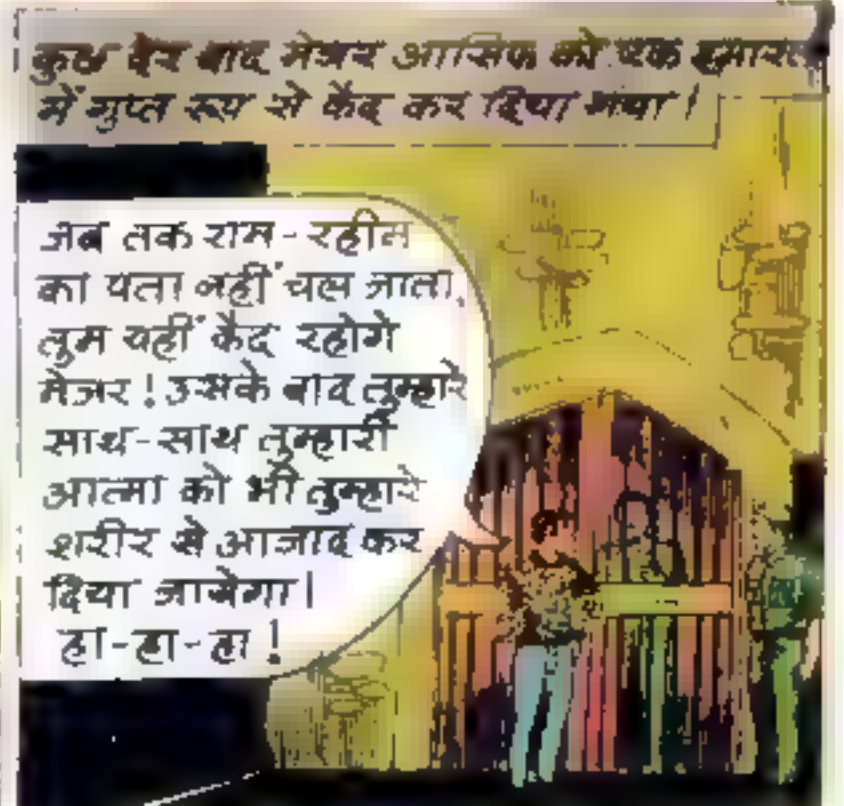 कुछ देर बाद मेजर आसिफ को एक इमारत
में गुप्त रूप से कैद कर दिया गया।
जब तक राम-रहीम
का पता नहीं चल जाता,
तुम यहीं कैद रहोगे
मेजर! उसके बाद तुम्हारे
साथ-साथ तुम्हारी
आत्मा को भी तुम्हारे
शरीर से आजाद कर
दिया जायेगा।
हा-हा-हा!